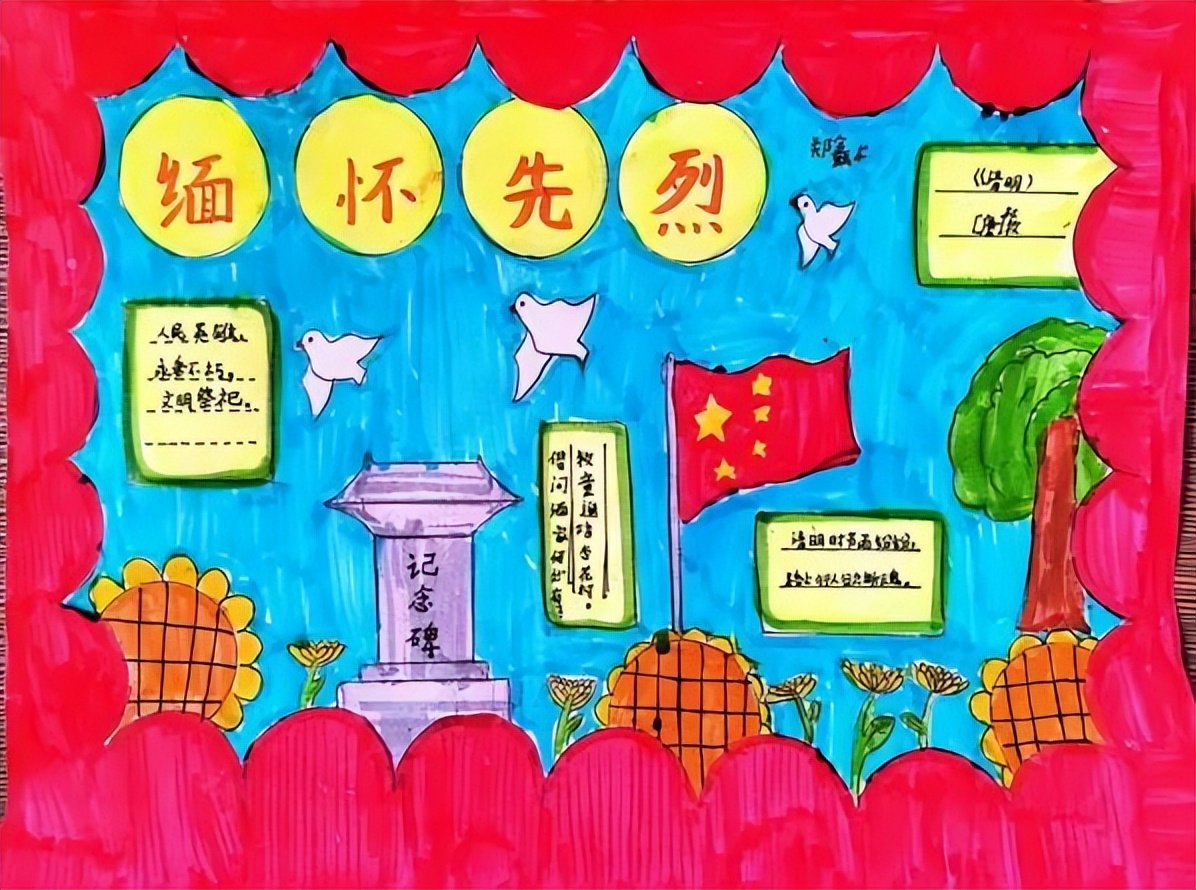 缅怀先烈
《清明》
海报
人民英雄、
永垂不朽。
文明祭祀。
借问家何处有
牧童遥指杏花村。
清明时节雨纷纷,
路上行人欲断魂。
记念碑